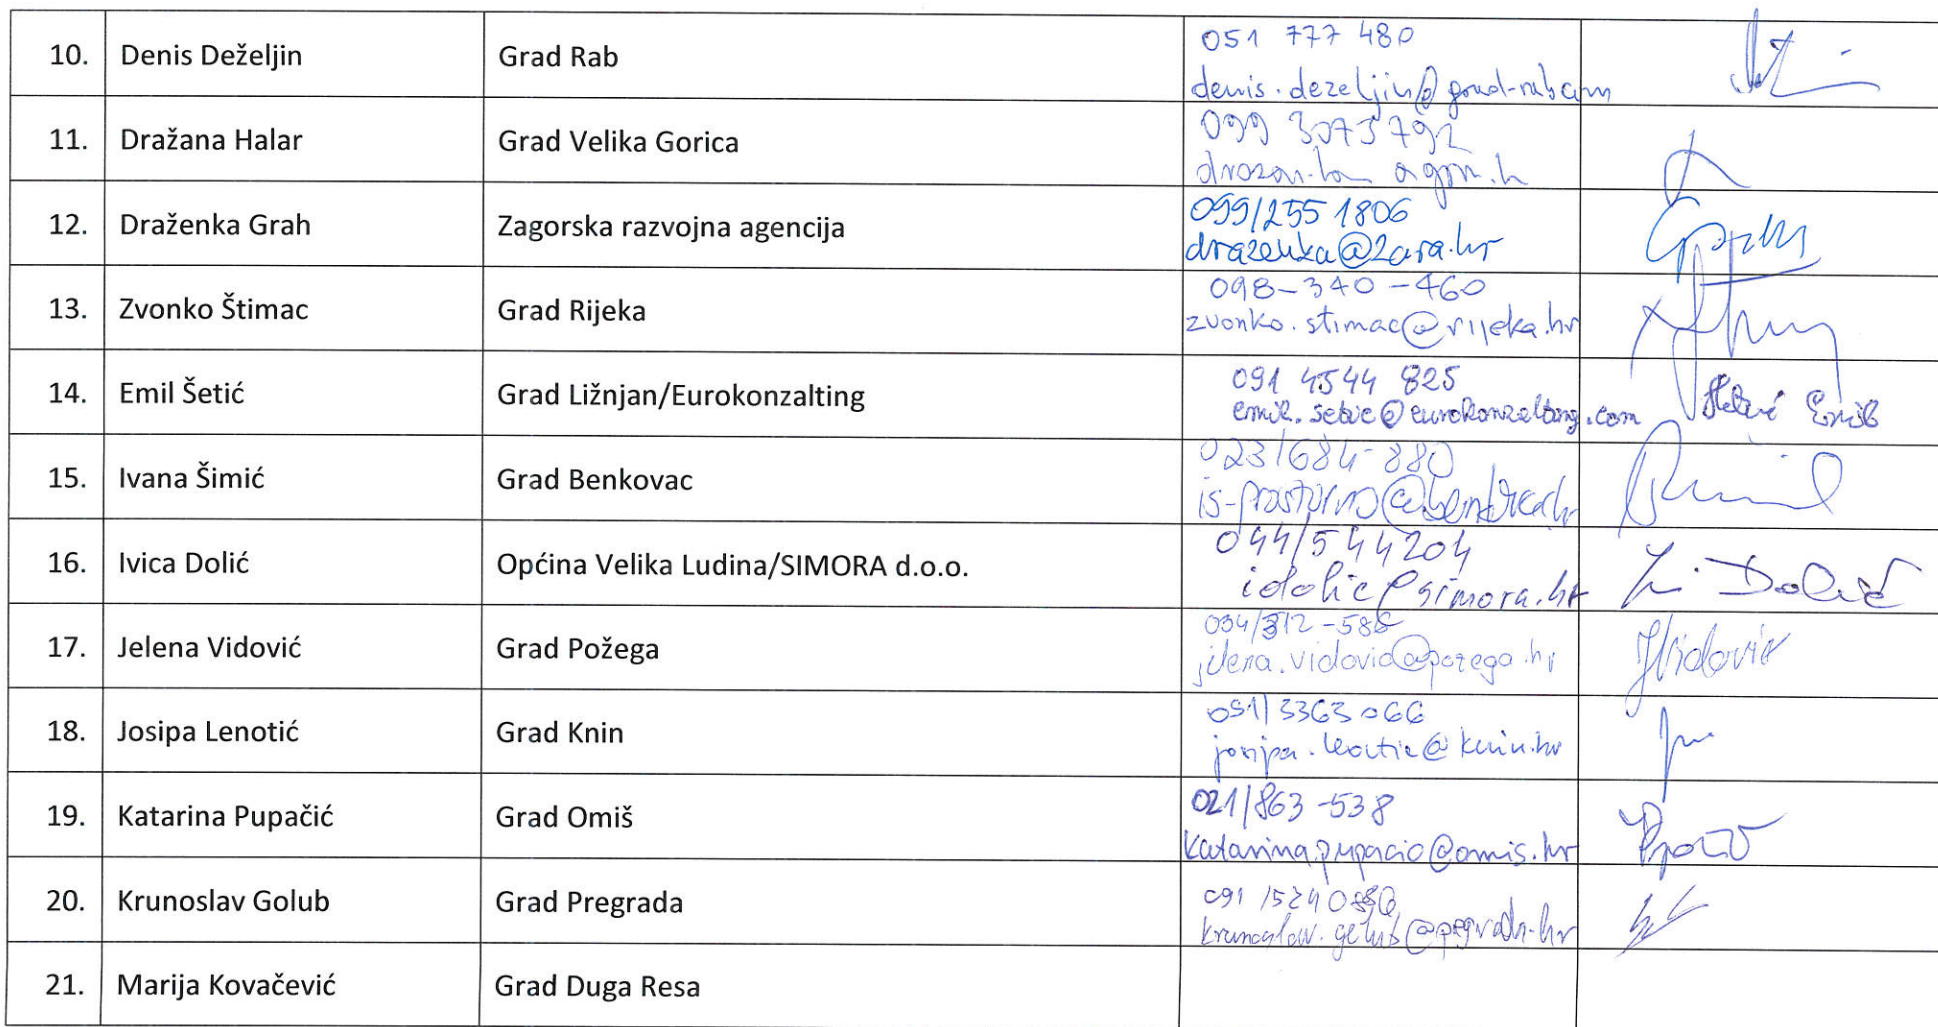 10. Denis Deželjin Grad Rab 051 777 480
denis.dezeljin@grad-rab.com
11. Dražana Halar Grad Velika Gorica 099 3073 792
12. Draženka Grah Zagorska razvojna agencija 099/255 1806
drazenka@zara.hr
13. Zvonko Štimac Grad Rijeka 098-340-460
zvonko.stimac@rijeka.hr
14. Emil Šetić Grad Ližnjan/Eurokonzalting 091 4544 825
emil.setic@eurokonzalting.com Šetić Emil
15. Ivana Šimić Grad Benkovac 023/684-880
is-prostorno@benkovac.hr
16. Ivica Dolić Općina Velika Ludina/SIMORA d.o.o. 044/544204
idolic@simora.hr Dolić
17. Jelena Vidović Grad Požega 034/312-586
jelena.vidovic@pozega.hr JVidović
18. Josipa Lenotić Grad Knin 091/3363066
josipa.lenotic@knin.hr
19. Katarina Pupačić Grad Omiš 021/863-538
katarina.pupacic@omis.hr
20. Krunoslav Golub Grad Pregrada 091/5240
krunoslav.golub@pregrada.hr
21. Marija Kovačević Grad Duga Resa